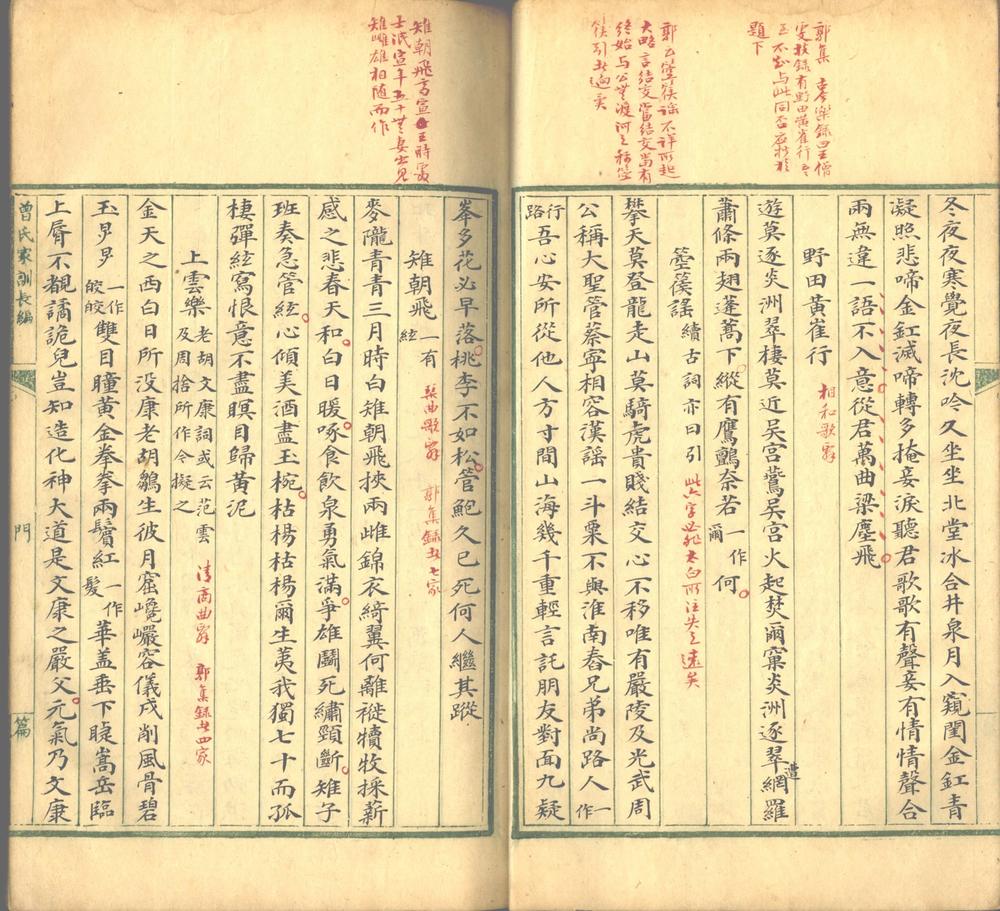 郭集
題下
冬夜夜寒覺夜長沈吟久坐坐北堂冰合井泉月入窺閨金釭青
凝照悲啼金釭滅啼轉多掩妾淚聽君歌歌有聲妾有情情聲合
兩無違一語不入意從君萬曲梁塵飛
野田黃雀行 相和歌辭
遊莫逐炎洲翠棲莫近吳宮鷰吳宮火起焚爾窠炎洲逐翠遭網羅
蕭條兩翅蓬蒿下縱有鷹鸇奈若一作爾何
郭云箜篌謠不詳所起
大略言結交當結交當有
終始與公無渡河之
箜篌謠續古詞亦曰引 此六字必非太白所注失之遠矣
攀天莫登龍走山莫騎虎貴賤結交心不移唯有嚴陵及光武周
公稱大聖管蔡寧相容漢謠一斗粟不與淮南舂兄弟尚路人一作
行路吾心安所從他人方寸間山海幾千重輕言託朋友對面九疑
峯多花必早落桃李不如松管鮑久已死何人繼其蹤
雉朝飛高宣王時處
士泯宣年五十無妻出見
雉雌雄相隨而作
雉朝飛一有絃 琴曲歌辭 郭集錄廿七家
麥隴青青三月時白雉朝飛挾兩雌錦衣綺翼何離褷犢牧採薪
感之悲春天和白日暖啄食飲泉勇氣滿爭雄鬭死繡頸斷雉子
班奏急管絃心傾美酒盡玉椀枯楊枯楊爾生荑我獨七十而孤
棲彈絃寫恨意不盡瞑目歸黃泥
上雲樂老胡文康詞或云范雲及周捨所作今擬之 清商曲辭 郭集錄廿四家
金天之西白日所没康老胡鶵生彼月窟巉巖容儀戌削風骨碧
玉炅炅一作皎皎雙目瞳黃金拳拳兩鬢紅一作髮華蓋垂下睫嵩岳臨
上脣不覩譎詭皃豈知造化神大道是文康之嚴父元氣乃文康
曾氏家訓長編
門
篇